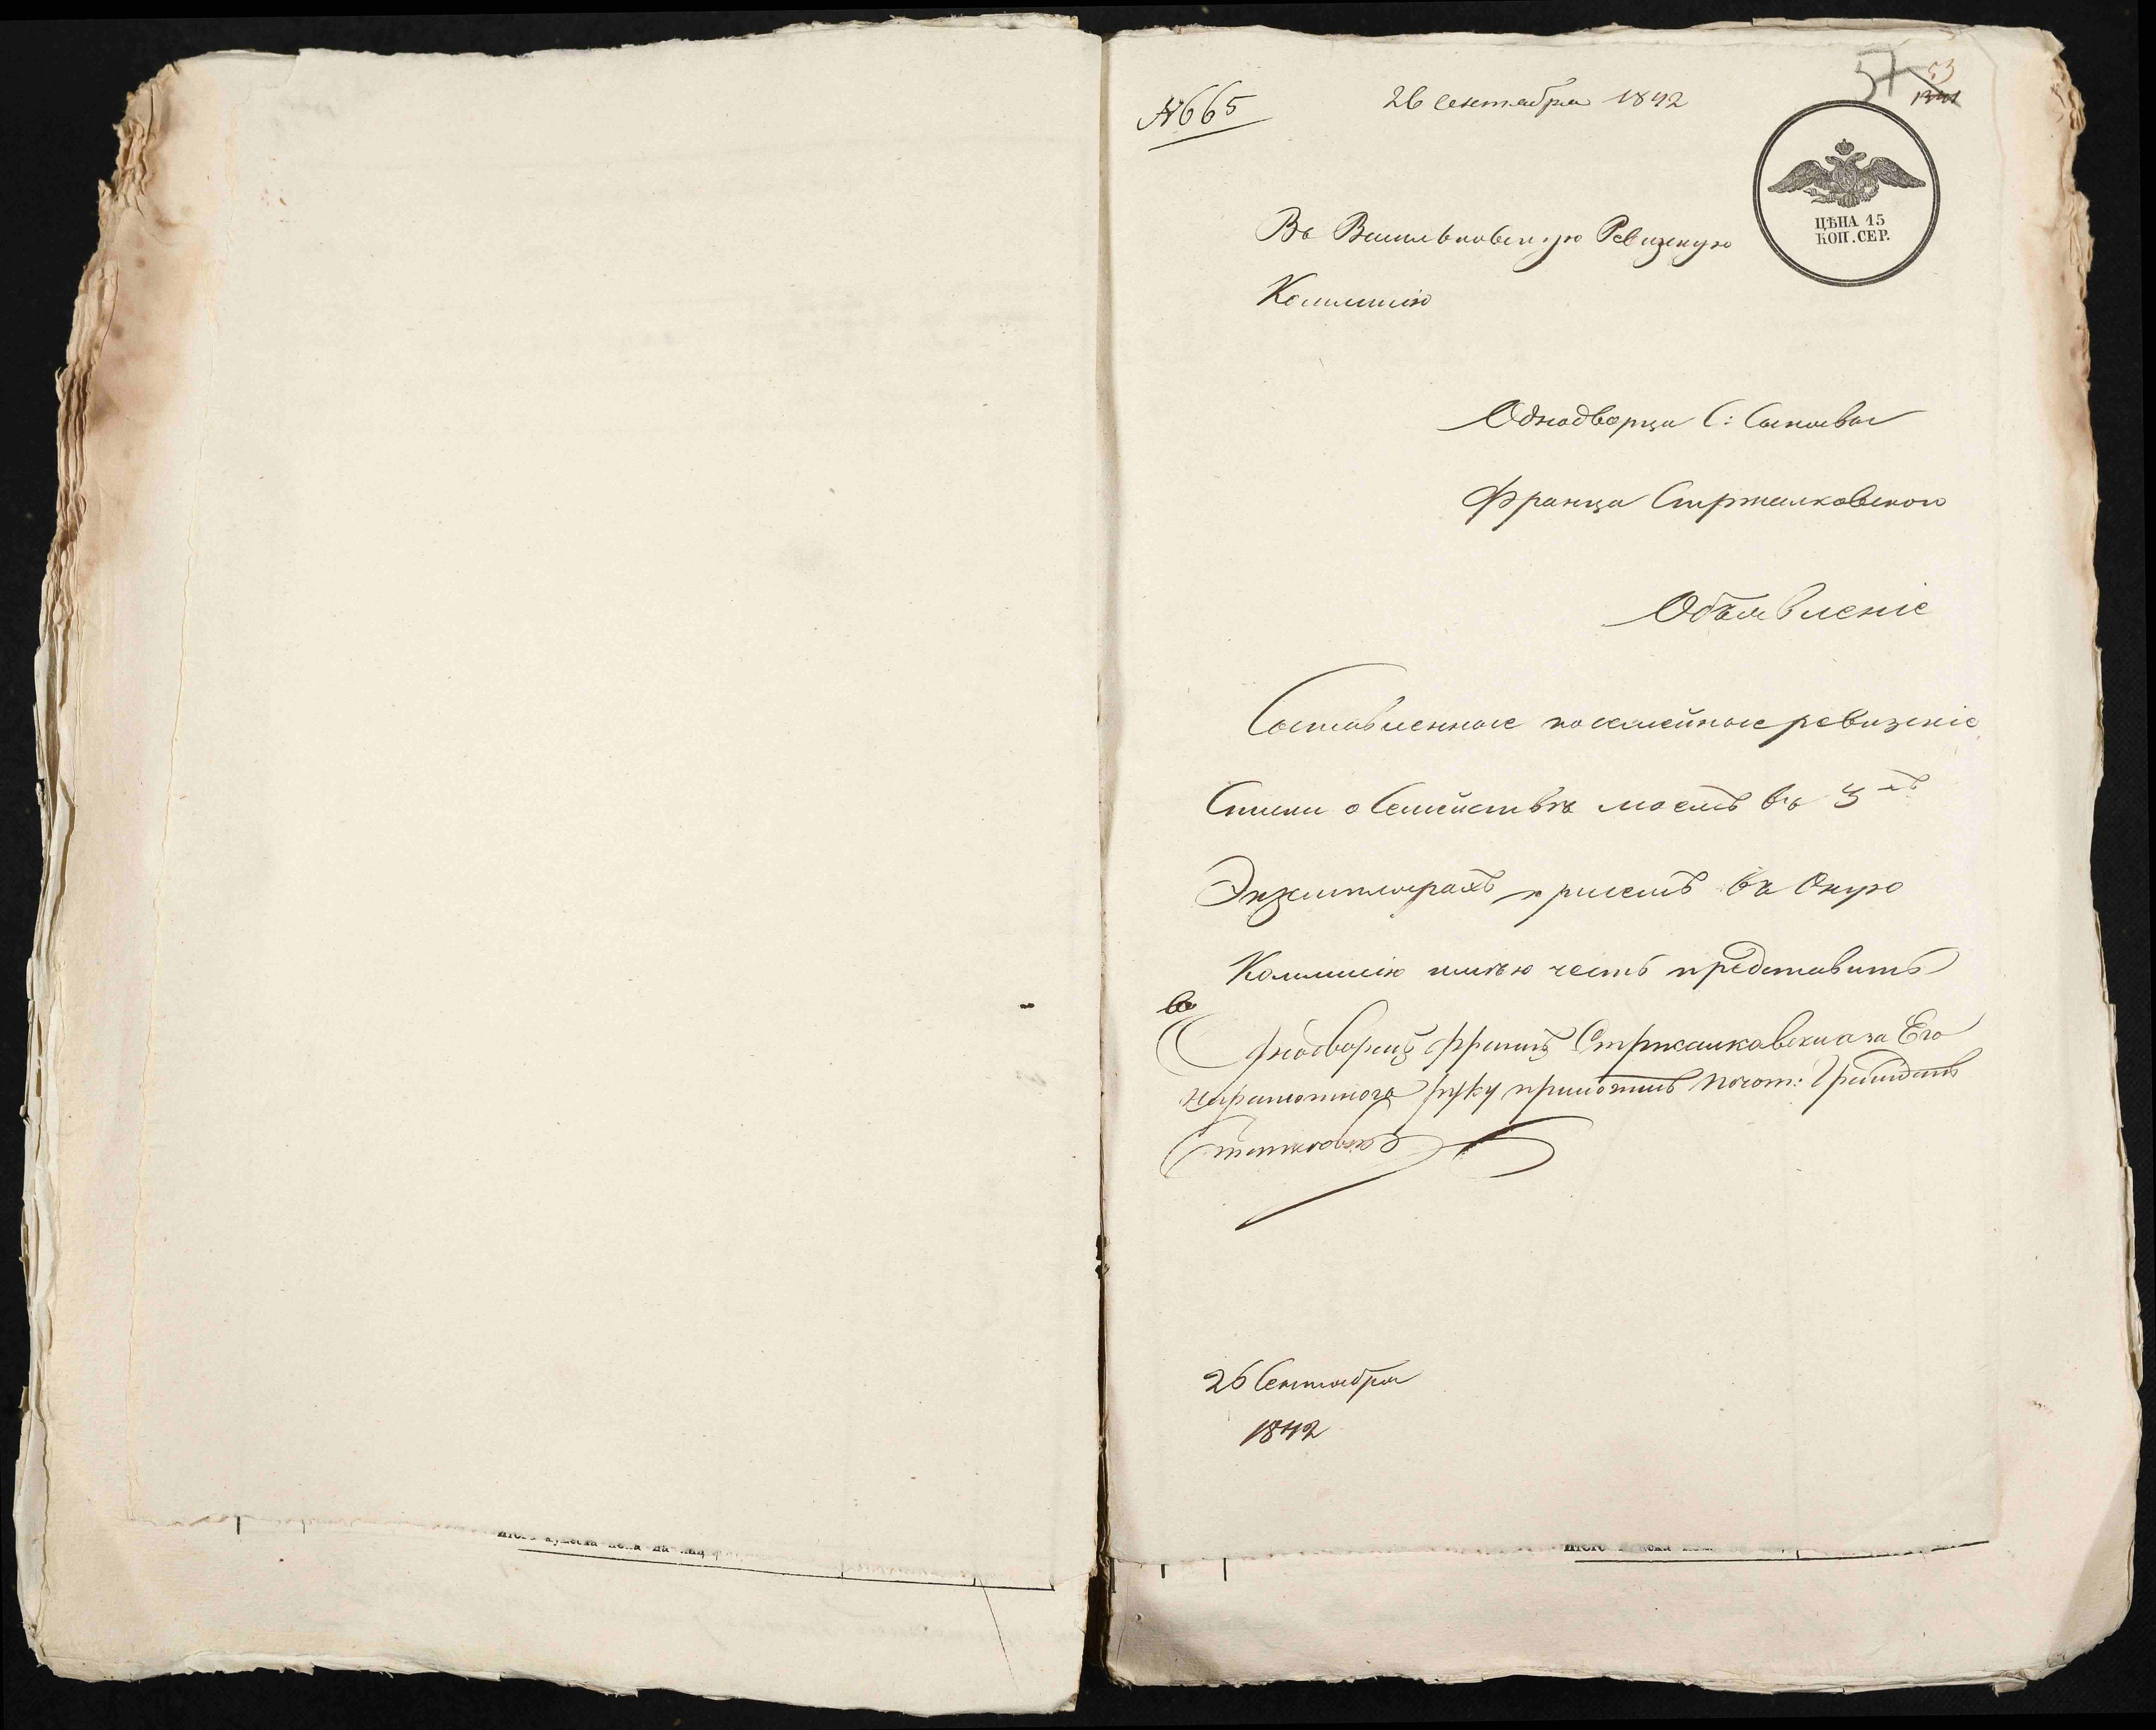 № 665
26 Сентября 1842
57
53
ЦѢНА 15
КОП. СЕР.
Въ Васильковскую Ревизкую
Коммисію
Однодворца С:
Франца Стржалковского
Объявленіе
Составленные посемейные ревизкіе
Списки о Семействѣ моемъ въ 3хъ
Экземплярахъ при семъ въ Оную
Коммисію имѣю честь представить
Однодворецъ Францъ Стржалковскій а за Его
неграмотного руку приложилъ почот: Гражданъ
26 Сентября
1842